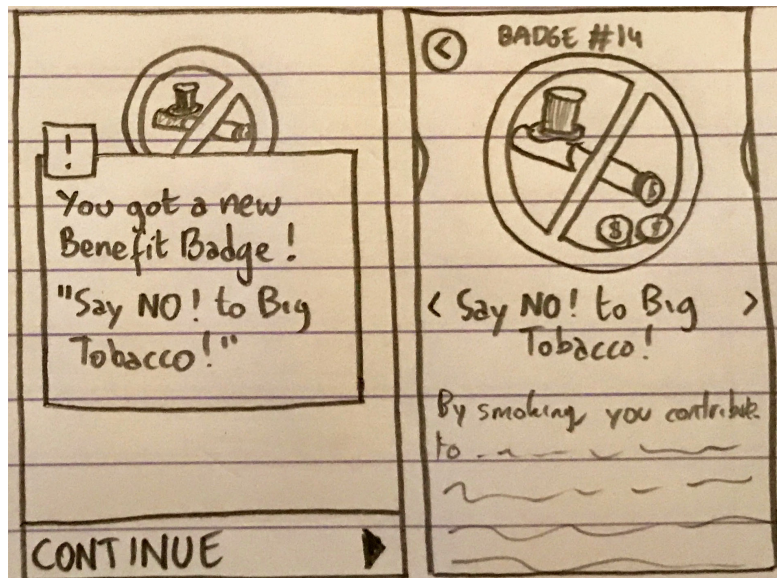 !
You got a new
Benefit Badge!
"Say NO! to Big
Tobacco!"
CONTINUE
BADGE #14
$ $
< Say NO! to Big >
Tobacco!
By smoking, you contribute
to